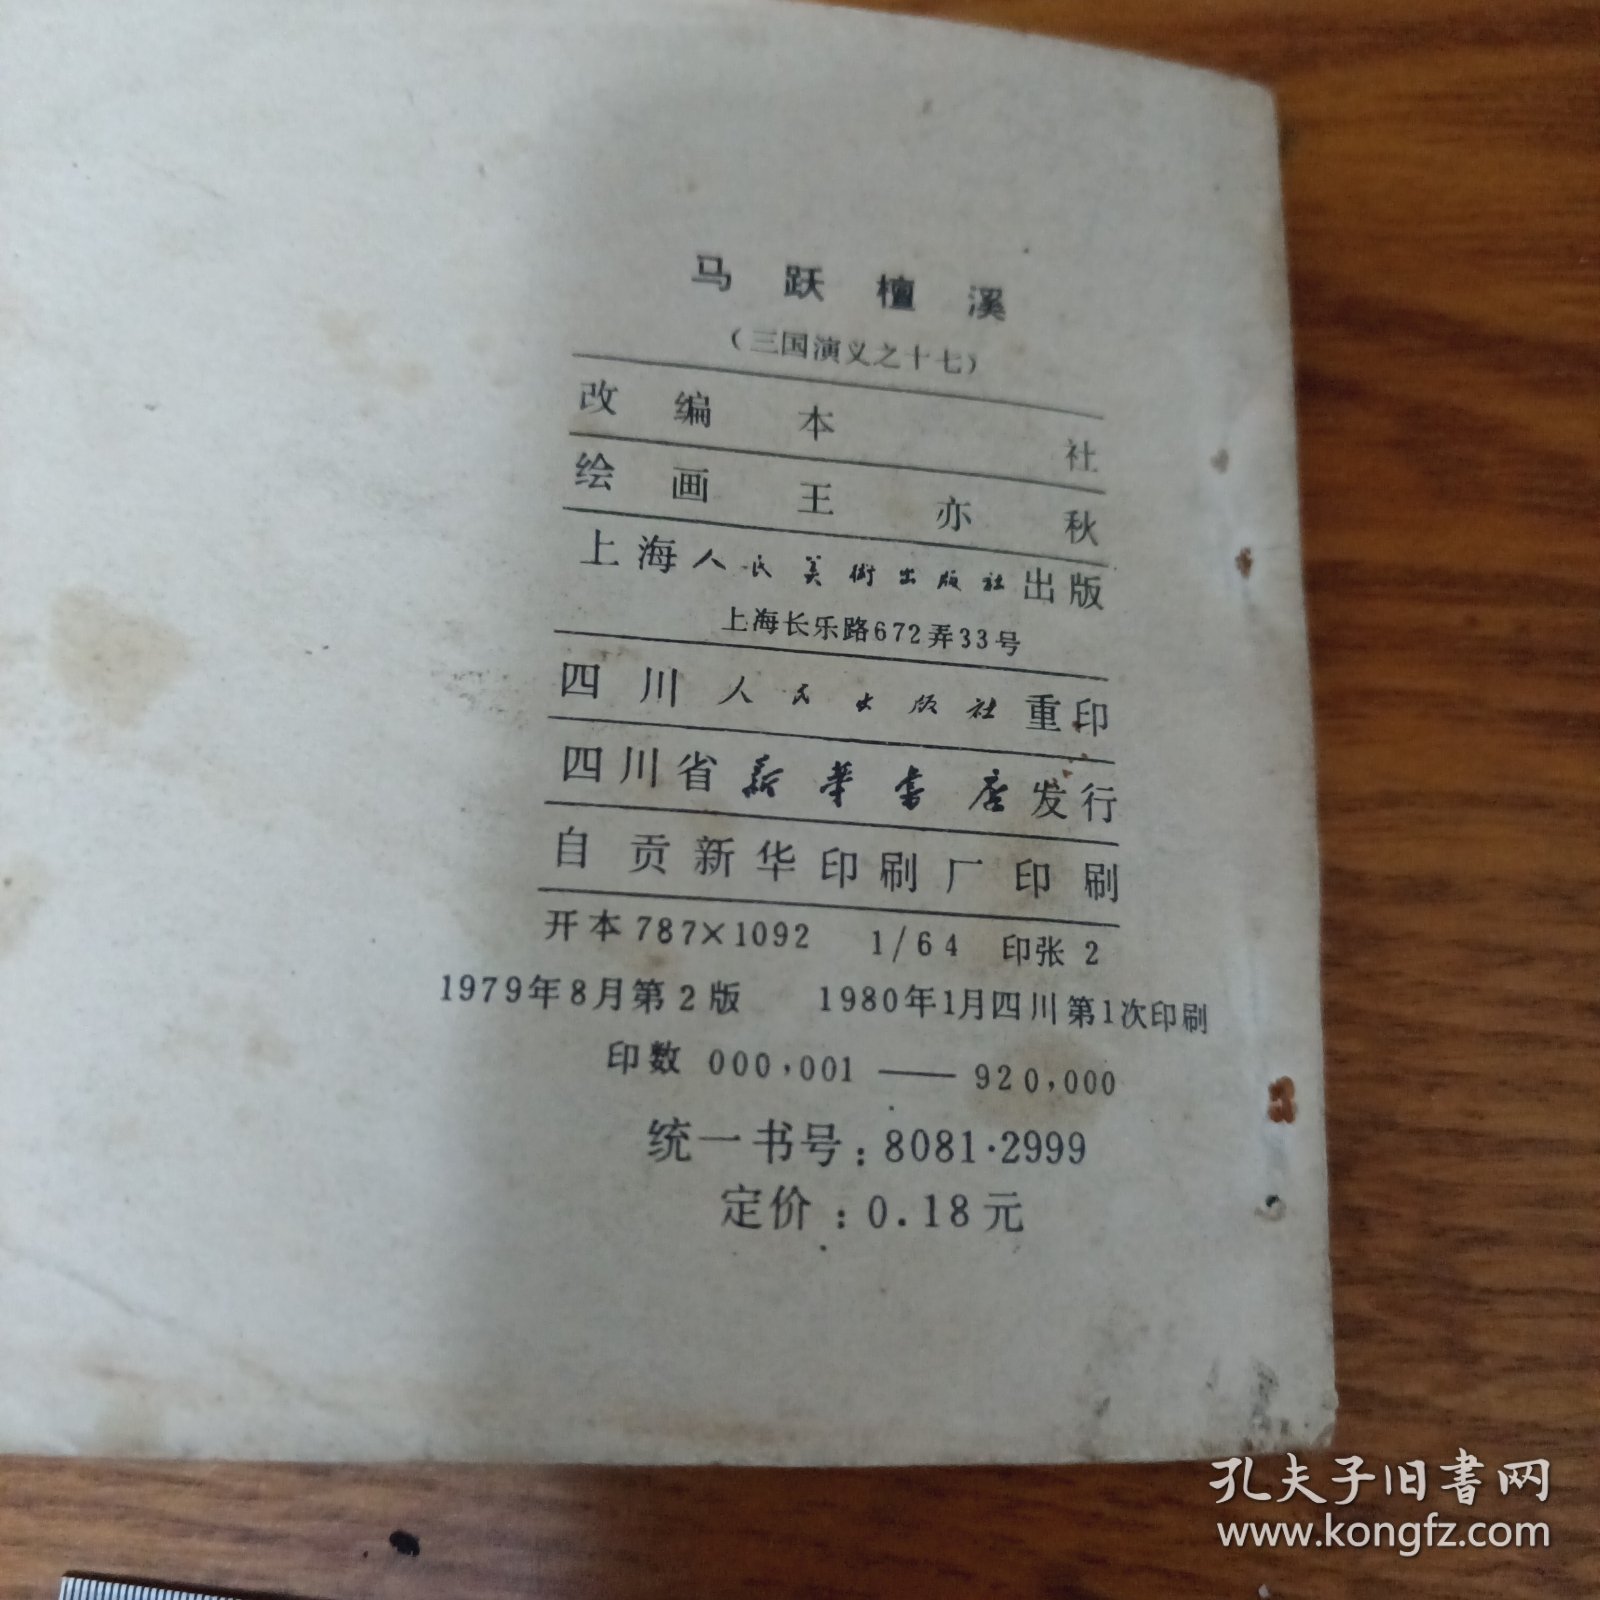 马跃檀溪
（三国演义之十七）
改编 本社
绘画 王亦秋
上海人民美術出版社出版
上海长乐路672弄33号
四川人民出版社重印
四川省新华书店发行
自贡新华印刷厂印刷
开本 787×1092 1/64 印张 2
1979年8月第2版 1980年1月四川第1次印刷
印数 000,001——920,000
统一书号：8081·2999
定价：0.18元
孔夫子旧书网
www.kongfz.com